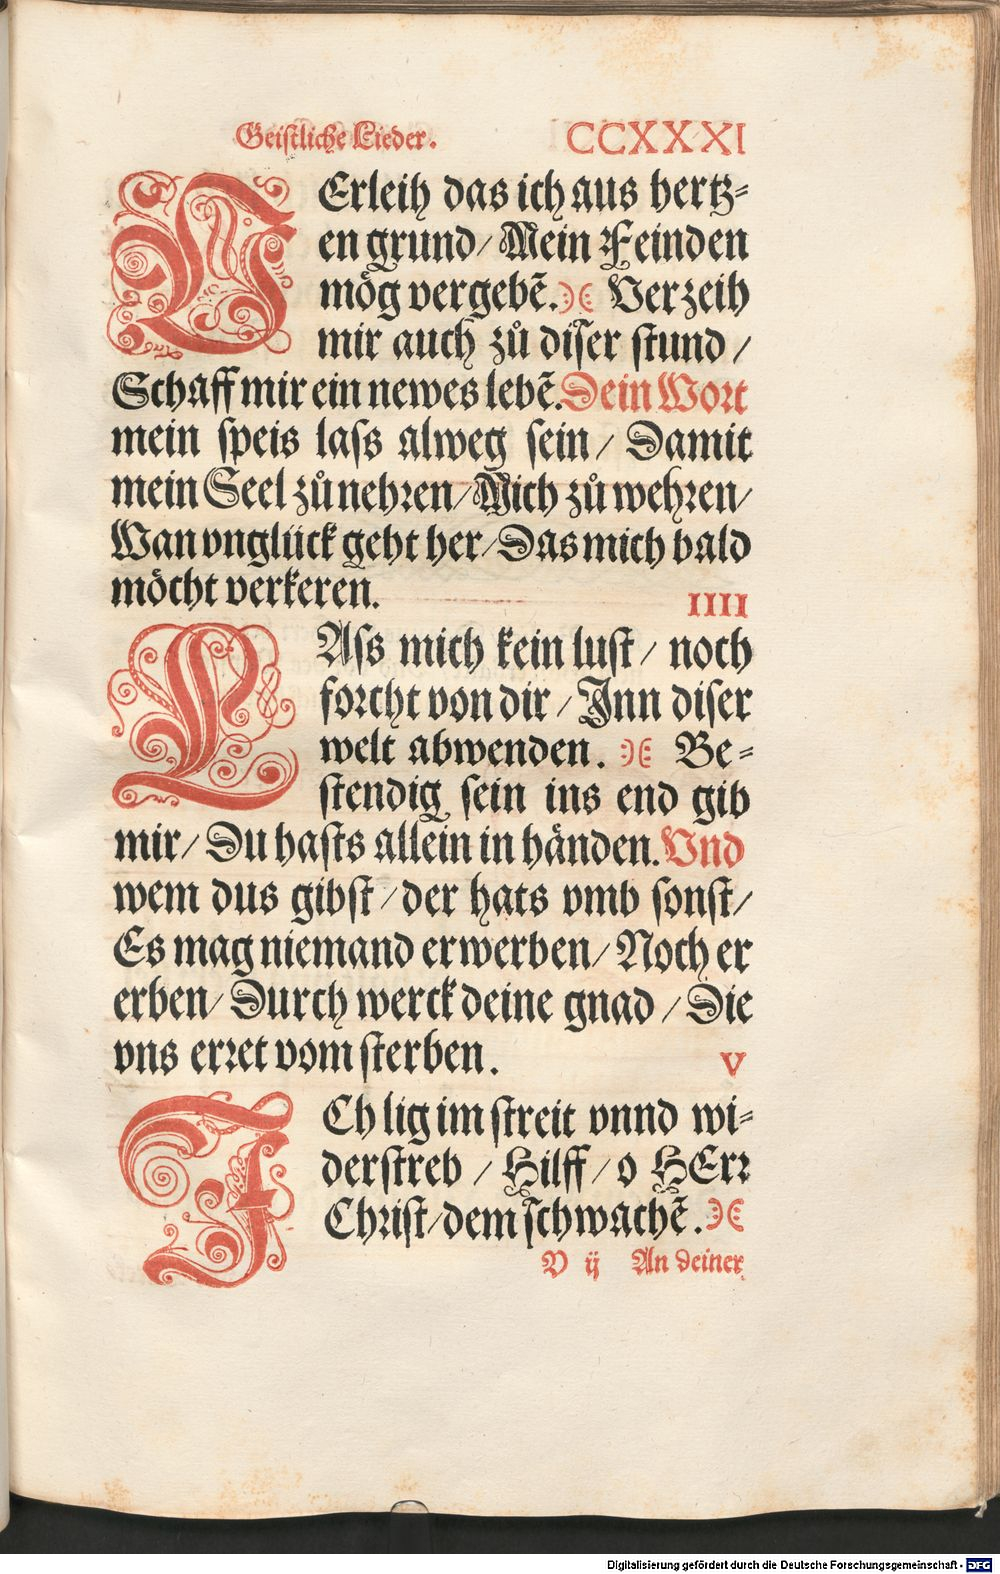 Geistliche Lieder. CCXXXI
VErleih das ich aus hertz-
en grund/ Mein Feinden
mög vergebẽ. Verzeih
mir auch zů diser stund /
Schaff mir ein newes lebẽ. Dein Wort
mein speis lass alweg sein/ Damit
mein Seel zů nehren/ Mich zů wehren/
Wan vnglück geht her/ Das mich bald
möcht verkeren.
IIII
LAss mich kein lust/ noch
forcht von dir / Inn diser
welt abwenden. Be-
stendig sein ins end gib
mir/ Du hasts allein in händen. Vnd
wem dus gibst/ der hats vmb sonst/
Es mag niemand erwerben/ Noch er
erben/ Durch werck deine gnad / Die
vns erret vom sterben.
V
ICh lig im streit vnnd wi-
derstreb / Hilff / o HErr
Christ/ dem schwachẽ.
V ij An deiner
Digitalisierung gefördert durch die Deutsche Forschungsgemeinschaft - DFG